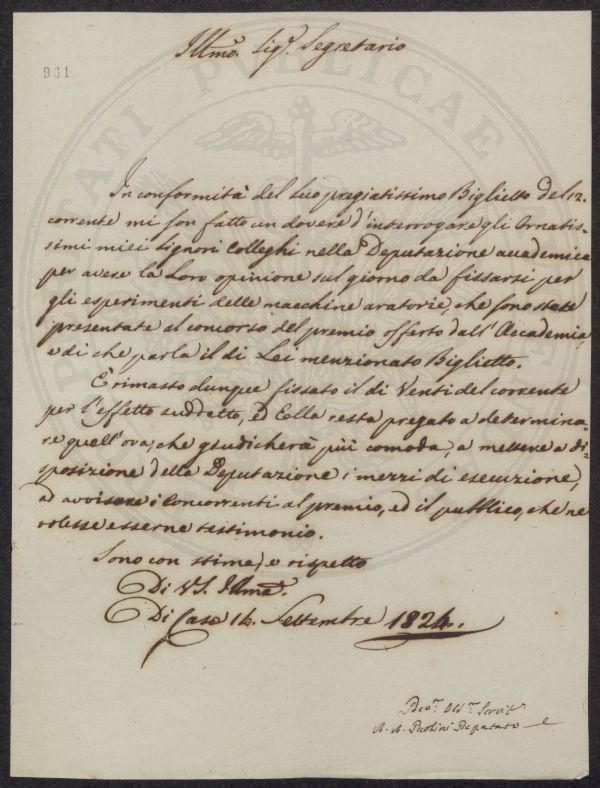 Illmo. Sigr. Segretario
931
In conformità del suo pregiatissimo Biglietto del 12.
corrente mi son fatto un dovere d'interrogare gli Ornatis-
simi miei Signori Colleghi nella Deputazione accademica
per avere la Loro opinione sul giorno da fissarsi per
gli esperimenti delle macchine aratorie, che sono state
presentate al concorso del premio offerto dall'Accademia,
e di che parla il di Lei menzionato Biglietto.
È rimasto dunque fissato il dì Venti del corrente
per l'effetto suddetto, ed Ella resta pregato a determina-
re quell'ora, che giudicherà più comoda, a mettere a di-
sposizione della Deputazione i mezzi di esecuzione,
ad avvisare i Concorrenti al premio, ed il pubblico, che ne
volesse esserne testimonio.
Sono con stima, e rispetto
Di V.S. Illma.
Di Casa 14. Settembre 1824.
Devo. Servit.
A. A. Paolini Deputato
PUBLICAE